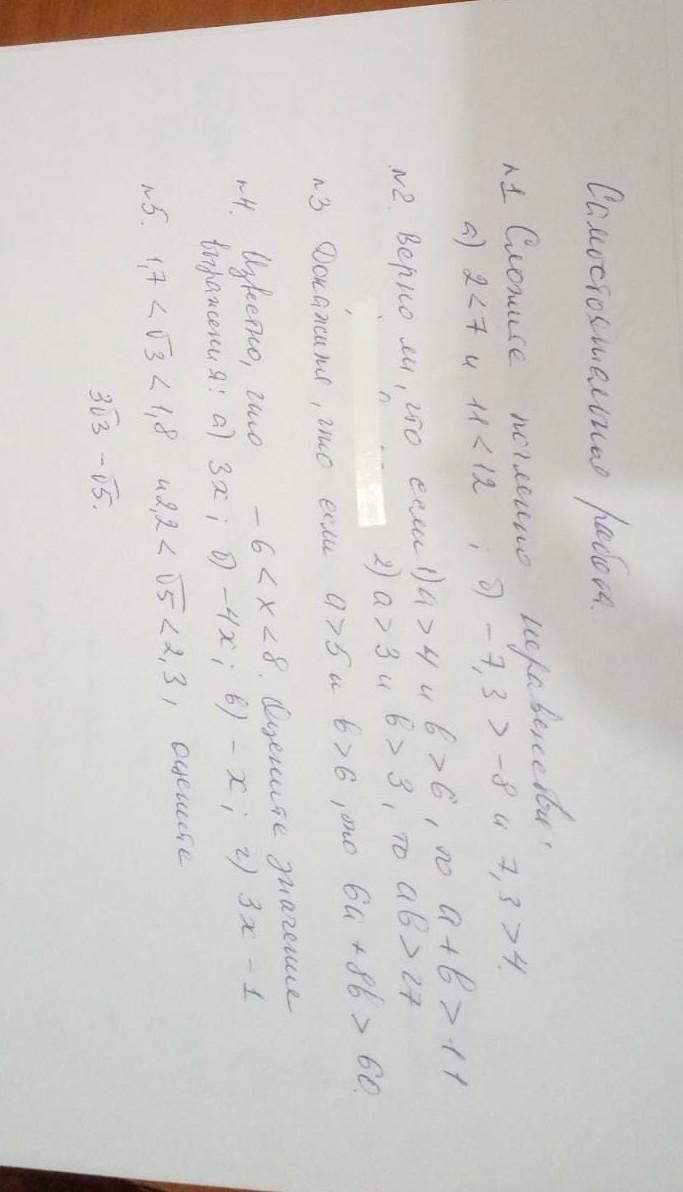 Самостоятельная работа.
n1 Сложите почленно неравенства:
а) 2<7 и 11<12 ; б) -7,3 > -8 и 7,3 >4.
n2. Верно ли, что если 1) a>4 и b>6, то a+b > 11
2) a>3 и b>3, то ab>27
n3 Докажите, что если a>5 и b>6, то 6a+8b > 60.
n4. Известно, что -6 < x < 8. Оцените значения
выражения: а) 3x; б) -4x; в) -x; г) 3x - 1
n5. 1,7 < √3 < 1,8 и 2,2 < √5 < 2,3, оцените
3√3 - √5.